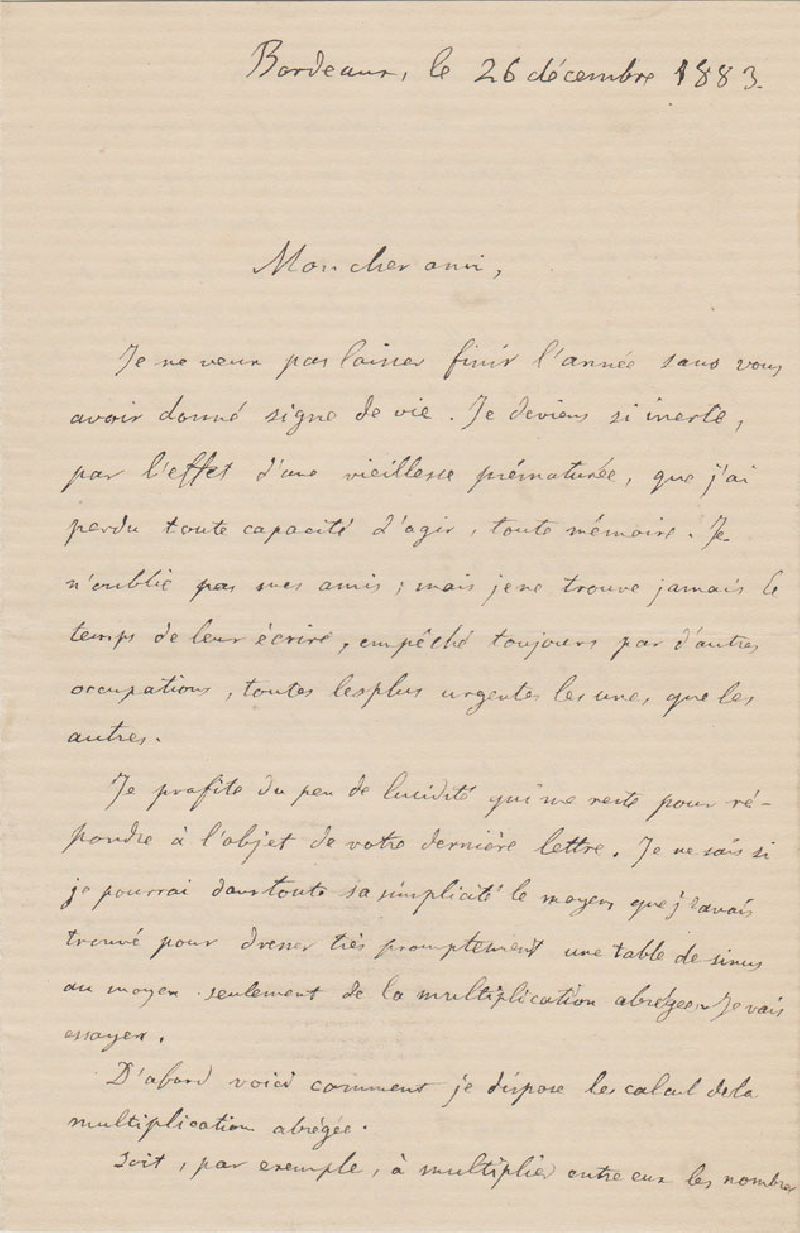 Bordeaux, le 26 décembre 1883.
Mon cher ami,
Je ne veux pas laisser finir l'année sans vous
avoir donné signe de vie. Je deviens si inerte,
par l'effet d'une vieillesse prématurée, que j'ai
perdu toute capacité d'agir, toute mémoire. Je
n'oublie pas mes amis ; mais je ne trouve jamais le
temps de leur écrire, empêché toujours par d'autres
occupations, toutes les plus urgentes les unes que les
autres.
Je profite du peu de lucidité qui me reste pour ré-
pondre à l'objet de votre dernière lettre. Je ne sais si
je pourrai dans toute sa simplicité le moyen que j'avais
trouvé pour dresser très promptement une table de sinus
au moyen seulement de la multiplication abrégée. Je vais
essayer.
D'abord voici comment je dispose le calcul de la
multiplication abrégée.
Soit, par exemple, à multiplier entre eux les nombres